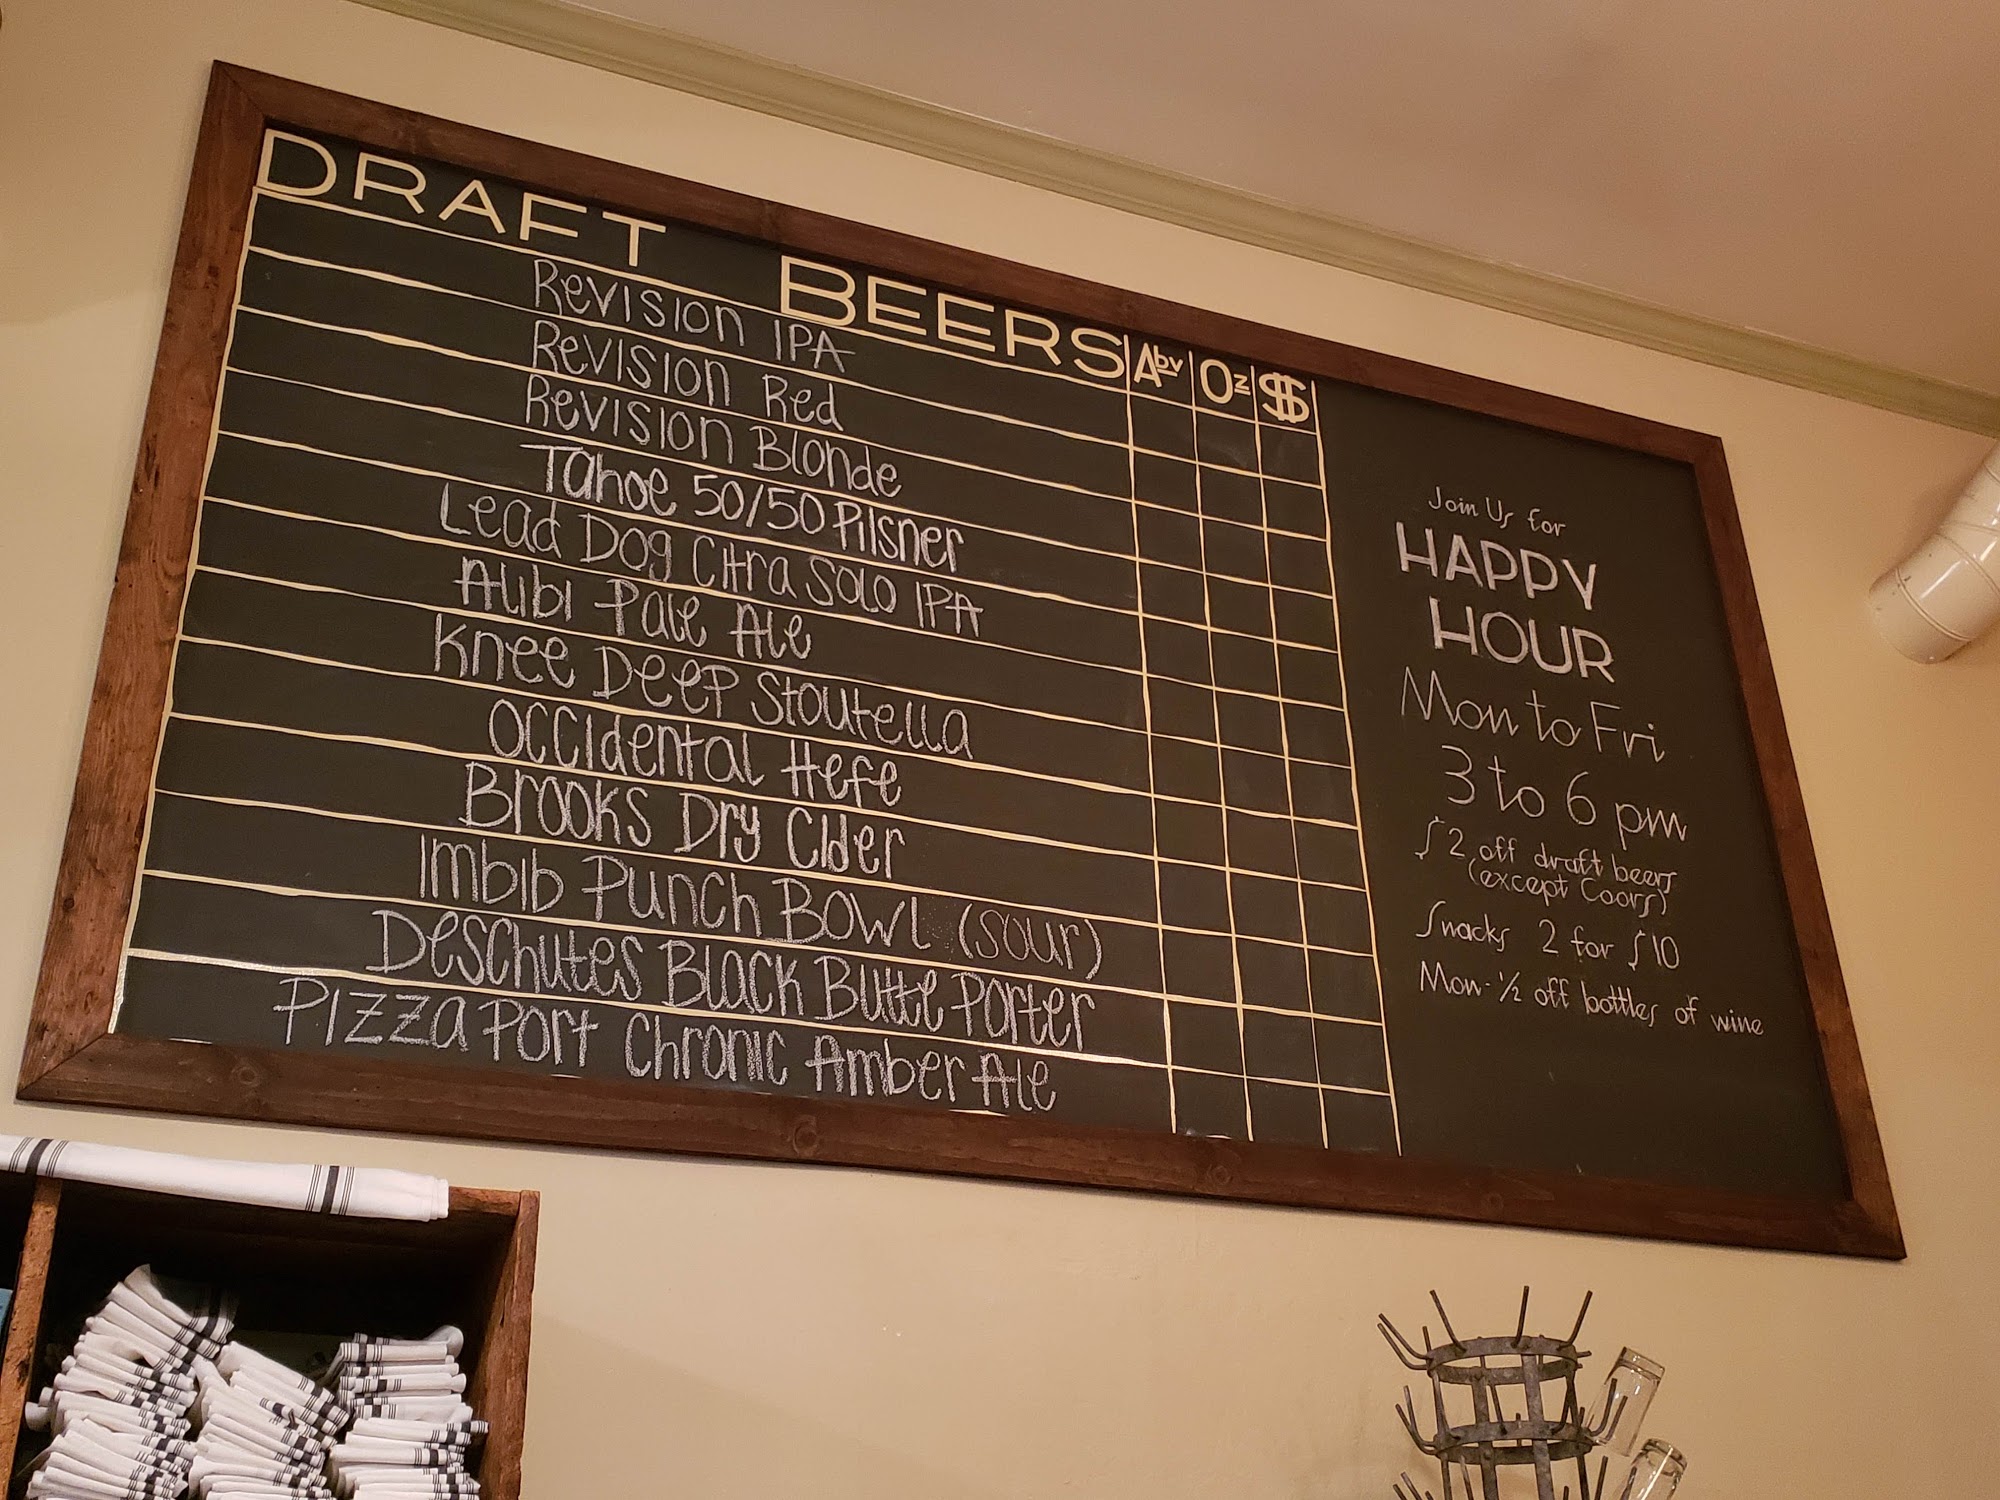 DRAFT BEERS Abv Oz $
Revision IPA
Revision Red
Revision Blonde
Tahoe 50/50 Pilsner
Lead Dog Citra Solo IPA
Alibi Pale Ale
Knee Deep Stoutella
Occidental Hefe
Brooks Dry Cider
Imbib Punch Bowl (sour)
Deschutes Black Butte Porter
Pizza Port Chronic Amber Ale
Join Us for
HAPPY
HOUR
Mon to Fri
3 to 6 pm
$2 off draft beers
(except Coors)
Snacks 2 for $10
Mon-½ off bottles of wine